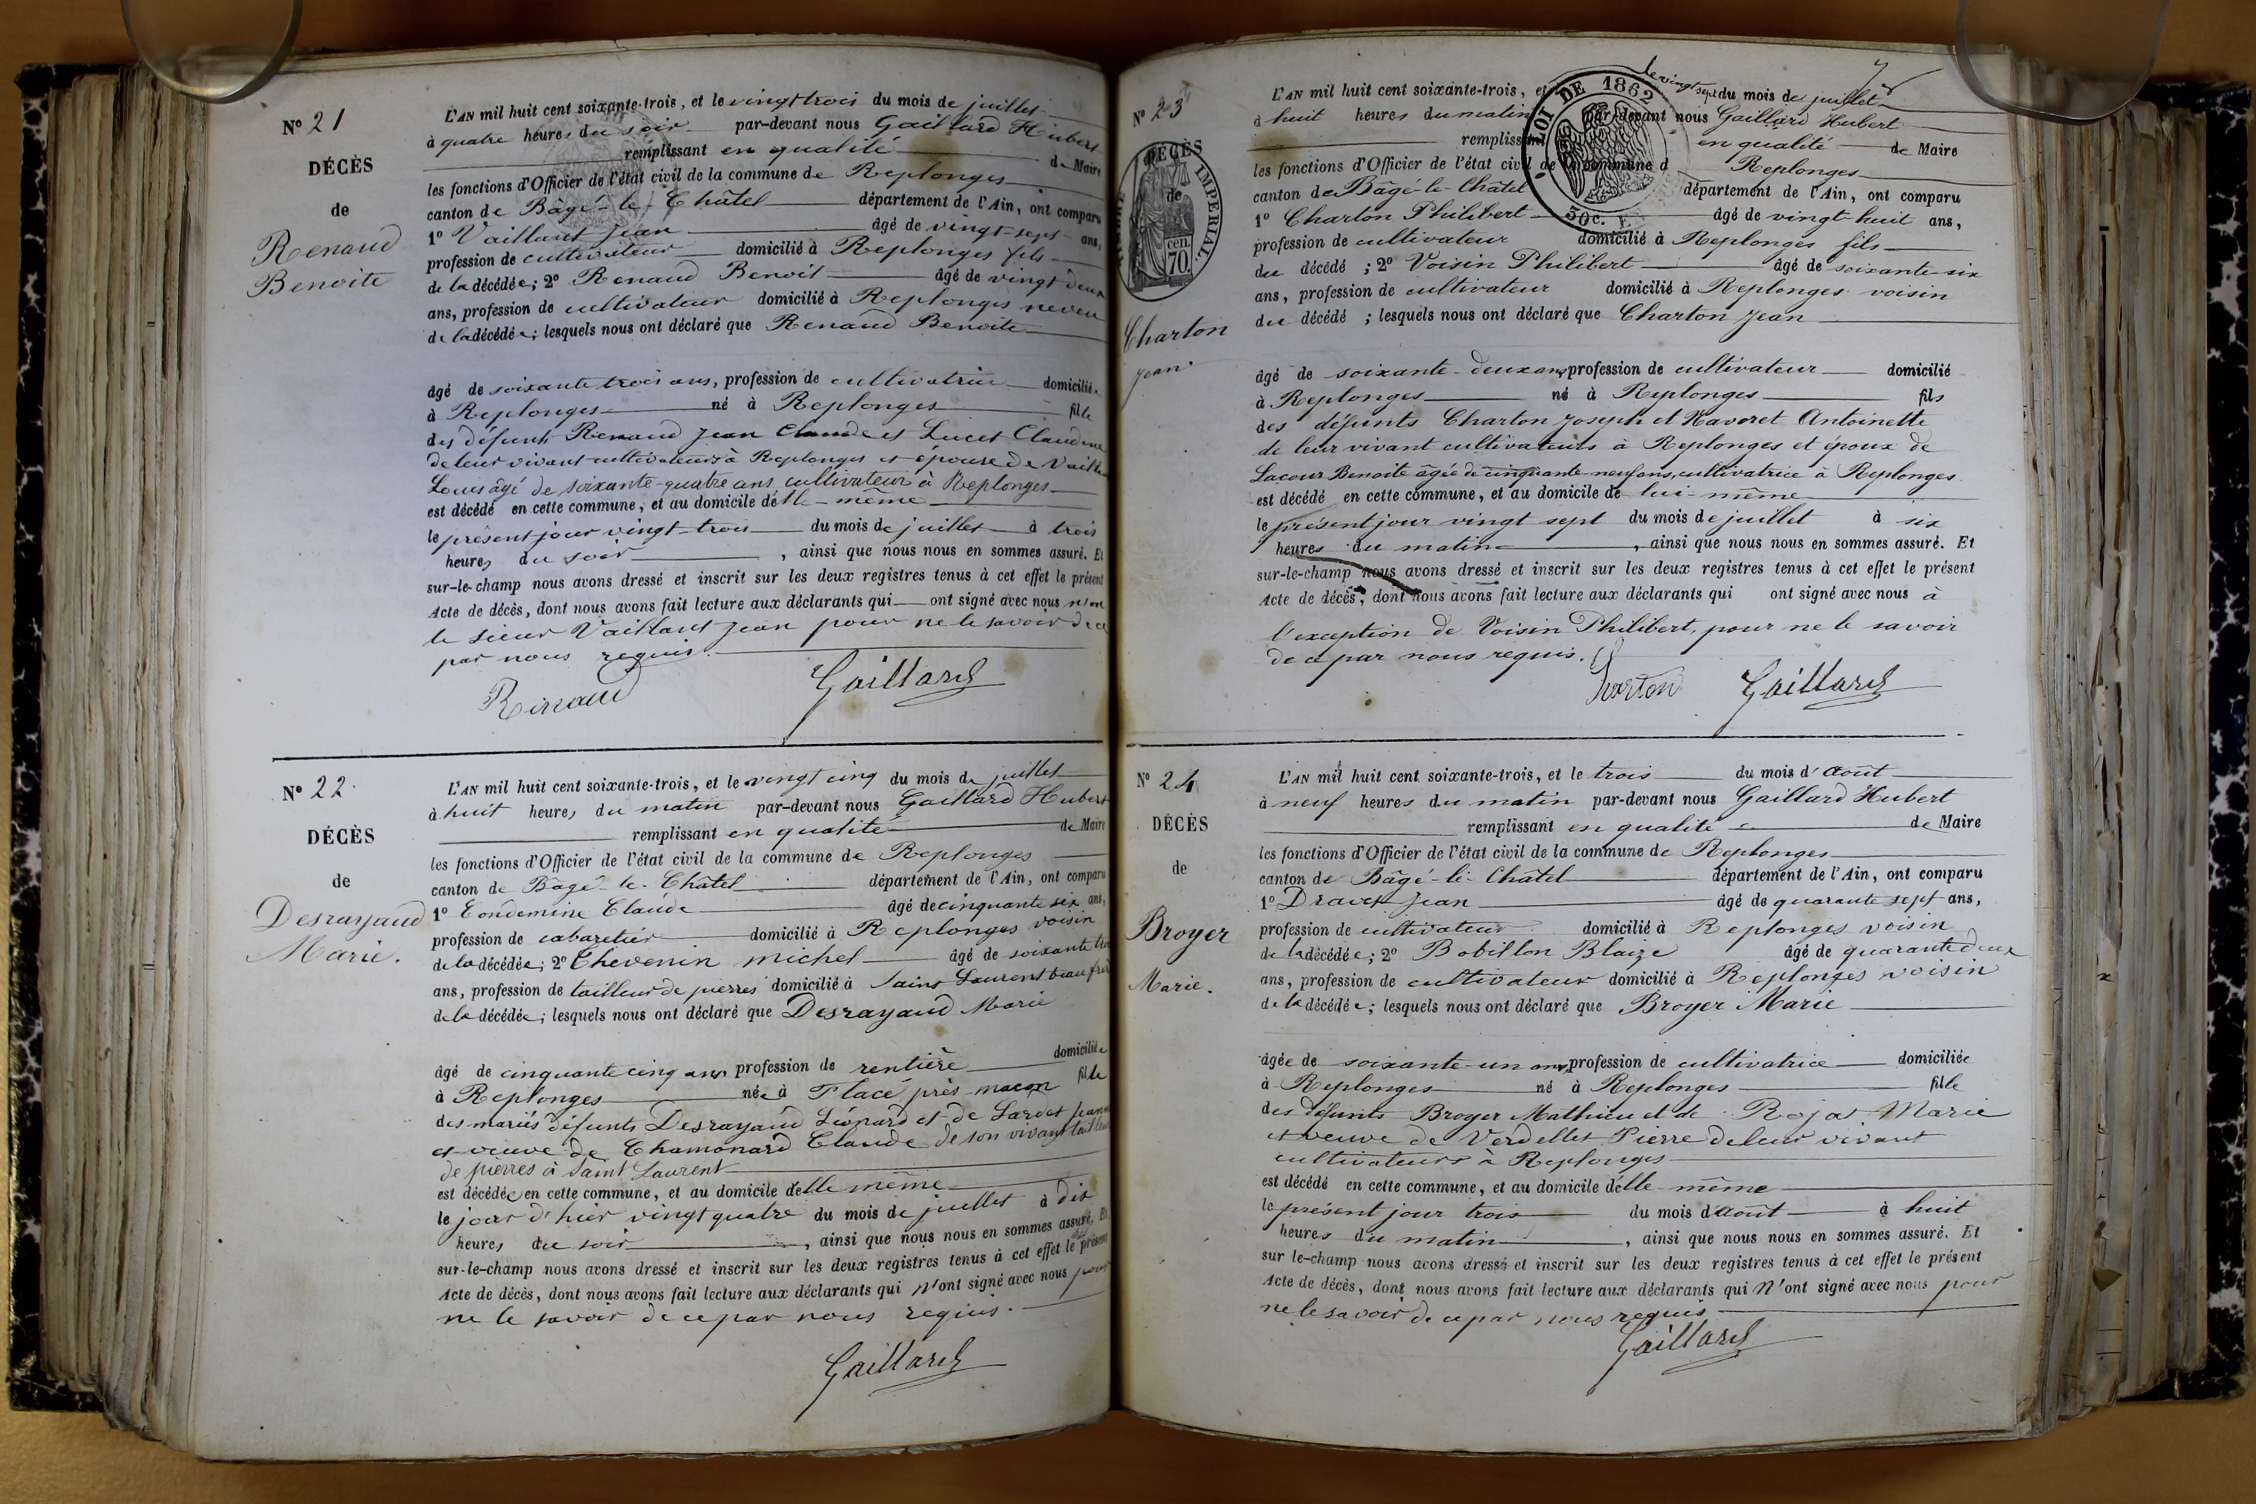 N° 21
DÉCÈS
de
Renaud
Benoite
L'AN mil huit cent soixante-trois, et le vingt trois du mois de juillet
à quatre heures du soir par-devant nous Gaillard Hubert
remplissant en qualité de Maire
les fonctions d'Officier de l'état civil de la commune de Replonges
canton de Bâgé-le-Châtel département de l'Ain, ont comparu
1° Vaillant Jean âgé de vingt-sept ans,
profession de cultivateur domicilié à Replonges fils
de la décédée; 2° Renaud Benoit âgé de vingt deux
ans, profession de cultivateur domicilié à Replonges neveu
de la décédée; lesquels nous ont déclaré que Renaud Benoite
âgé de soixante trois ans, profession de cultivatrice domiciliée
à Replonges né à Replonges fille
des défunts Renaud Jean Claude et Lucet Claudine
de leur vivant cultivateurs à Replonges et épouse de
Louis âgé de soixante-quatre ans cultivateur à Replonges
est décédé en cette commune, et au domicile d'elle-même
le présent jour vingt-trois du mois de juillet à trois
heures du soir, ainsi que nous nous en sommes assuré. Et
sur-le-champ nous avons dressé et inscrit sur les deux registres tenus à cet effet le présent
Acte de décès, dont nous avons fait lecture aux déclarants qui ont signé avec nous non
le sieur Vaillant Jean pour ne le savoir de ce
par nous requis.
Renaud Gaillard
N° 22
DÉCÈS
de
Desrayaud
Marie.
L'AN mil huit cent soixante-trois, et le vingt cinq du mois de juillet
à huit heures du matin par-devant nous Gaillard Hubert
remplissant en qualité de Maire
les fonctions d'Officier de l'état civil de la commune de Replonges
canton de Bâgé-le-Châtel département de l'Ain, ont comparu
1° Condemine Claude âgé de cinquante six ans,
profession de cabaretier domicilié à Replonges voisin
de la décédée; 2° Thevenin Michel âgé de soixante
ans, profession de tailleur de pierres domicilié à Saint Laurent beau frère
de la décédée; lesquels nous ont déclaré que Desrayaud Marie
âgé de cinquante cinq ans profession de rentière domiciliée
à Replonges née à Flacé près macon fille
des mariés défunts Desrayaud Léonard et de Lardet Jeanne
et veuve de Chamonard Claude de son vivant tailleur
de pierres à Saint Laurent
est décédée en cette commune, et au domicile d'elle même
le jour d'hier vingt quatre du mois de juillet à dix
heures du soir, ainsi que nous nous en sommes assuré. Et
sur-le-champ nous avons dressé et inscrit sur les deux registres tenus à cet effet le présent
Acte de décès, dont nous avons fait lecture aux déclarants qui n'ont signé avec nous pour
ne le savoir de ce par nous requis.
Gaillard
7
N° 23
DÉCÈS
de
TIMBRE IMPÉRIAL
CEN.
70
Charton
Jean.
LOI DE 1862
50c.
L'AN mil huit cent soixante-trois, et le vingt sept du mois de juillet
à huit heures du matin par-devant nous Gaillard Hubert
remplissant en qualité de Maire
les fonctions d'Officier de l'état civil de la commune d Replonges
canton de Bâgé-le-Châtel département de l'Ain, ont comparu
1° Charton Philibert âgé de vingt huit ans,
profession de cultivateur domicilié à Replonges fils
du décédé; 2° Voisin Philibert âgé de soixante-six
ans, profession de cultivateur domicilié à Replonges voisin
du décédé; lesquels nous ont déclaré que Charton Jean
âgé de soixante-deux ans, profession de cultivateur domicilié
à Replonges né à Replonges fils
des défunts Charton Joseph et Navoret Antoinette
de leur vivant cultivateurs à Replonges et époux de
Lacour Benoite âgée de cinquante-neuf ans, cultivatrice à Replonges
est décédé en cette commune, et au domicile de lui-même
le présent jour vingt sept du mois de juillet à six
heures du matin, ainsi que nous nous en sommes assuré. Et
sur-le-champ nous avons dressé et inscrit sur les deux registres tenus à cet effet le présent
Acte de décès, dont nous avons fait lecture aux déclarants qui ont signé avec nous à
l'exception de Voisin Philibert, pour ne le savoir
de ce par nous requis.
Charton Gaillard
N° 24
DÉCÈS
de
Broyer
Marie.
L'AN mil huit cent soixante-trois, et le trois du mois d'août
à neuf heures du matin par-devant nous Gaillard Hubert
remplissant en qualité de Maire
les fonctions d'Officier de l'état civil de la commune de Replonges
canton de Bâgé-le-Châtel département de l'Ain, ont comparu
1° Jean âgé de quarante sept ans,
profession de cultivateur domicilié à Replonges voisin
de la décédée; 2° Bobillon Blaize âgé de quarante deux
ans, profession de cultivateur domicilié à Replonges voisin
de la décédée; lesquels nous ont déclaré que Broyer Marie
âgée de soixante-un ans, profession de cultivatrice domiciliée
à Replonges né à Replonges fille
des défunts Broyer Mathieu et de Rojat Marie
et veuve de Verdellet Pierre de leur vivant
cultivateurs à Replonges
est décédé en cette commune, et au domicile d'elle-même
le présent jour trois du mois d'août à huit
heures du matin, ainsi que nous nous en sommes assuré. Et
sur le-champ nous avons dressé et inscrit sur les deux registres tenus à cet effet le présent
Acte de décès, dont nous avons fait lecture aux déclarants qui n'ont signé avec nous pour
ne le savoir de ce par nous requis
Gaillard